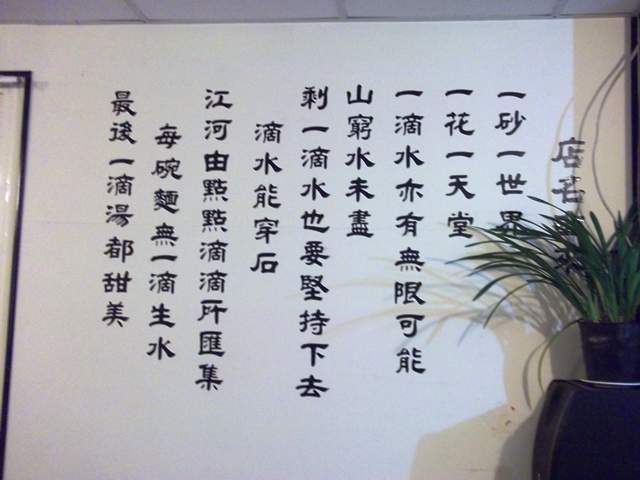 店名
一砂一世界
一花一天堂
一滴水亦有無限可能
山窮水未盡
剩一滴水也要堅持下去
滴水能穿石
江河由點點滴滴所匯集
每碗麵無一滴生水
最後一滴湯都甜美